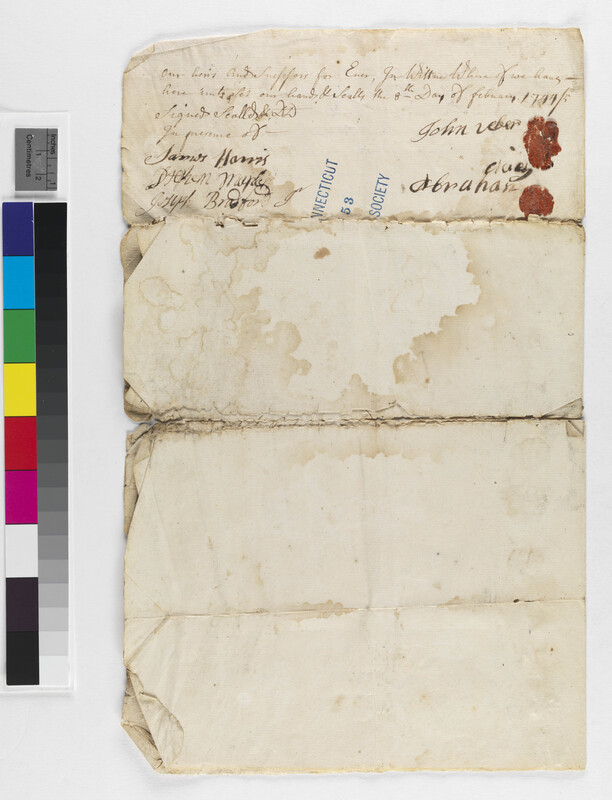 our heirs and Sucsesors for Ever, In Wittnes Whereof we have
here unto set our hands & Sealls the 8th Day of february 1744/5
Signed Sealld & DLD
In presence of
James Harris
John uber
Joseph Bradford Jr
Abraham
NNECTICUT
53
SOCIETY
inches
centimetres